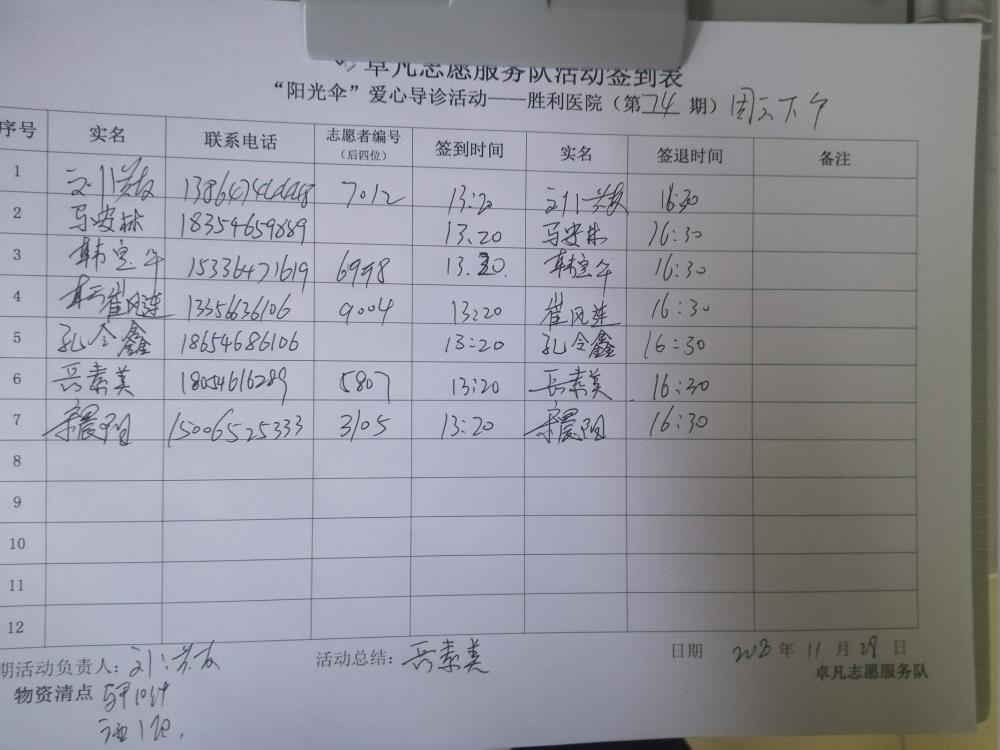 卓凡志愿服务队活动签到表
“阳光伞”爱心导诊活动——胜利医院（第74期）周三下午
序号 实名 联系电话 志愿者编号（后四位） 签到时间 实名 签退时间 备注
1 7012 13:20 16:30
2 马安林 18354659889 13.20 马安林 16:30
3 韩宝午 15336471619 6998 13.20. 韩宝午 16:30
4 崔风连 13356636106 9004 13:20 崔风连 16:30
5 孔令鑫 18654686106 13:20 孔令鑫 16:30
6 岳素美 18054616289 5807 13:20 岳素美 16:30
7 15006525333 3105 13:20 16:30
8
9
10
11
12
期活动负责人： 活动总结：岳素美 日期 2023年11月29日
物资清点 卓凡志愿服务队